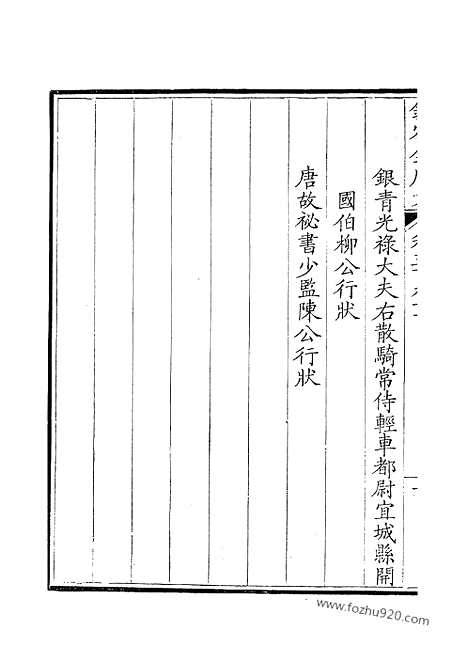 銀青光祿大夫右散騎常侍輕車都尉宜城縣開
國伯柳公行狀
唐故祕書少監陳公行狀
www.fozhu920.com